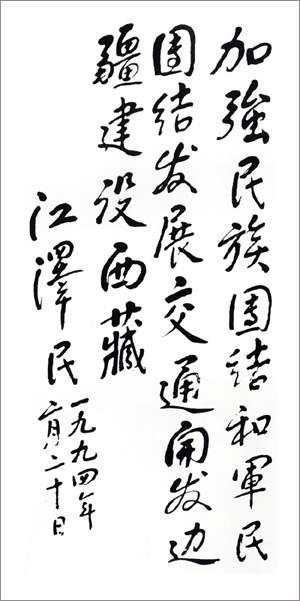 加強民族團結和軍民
團结发展交通開发边
疆建设西藏
江澤民
一九九四年
六月二十日